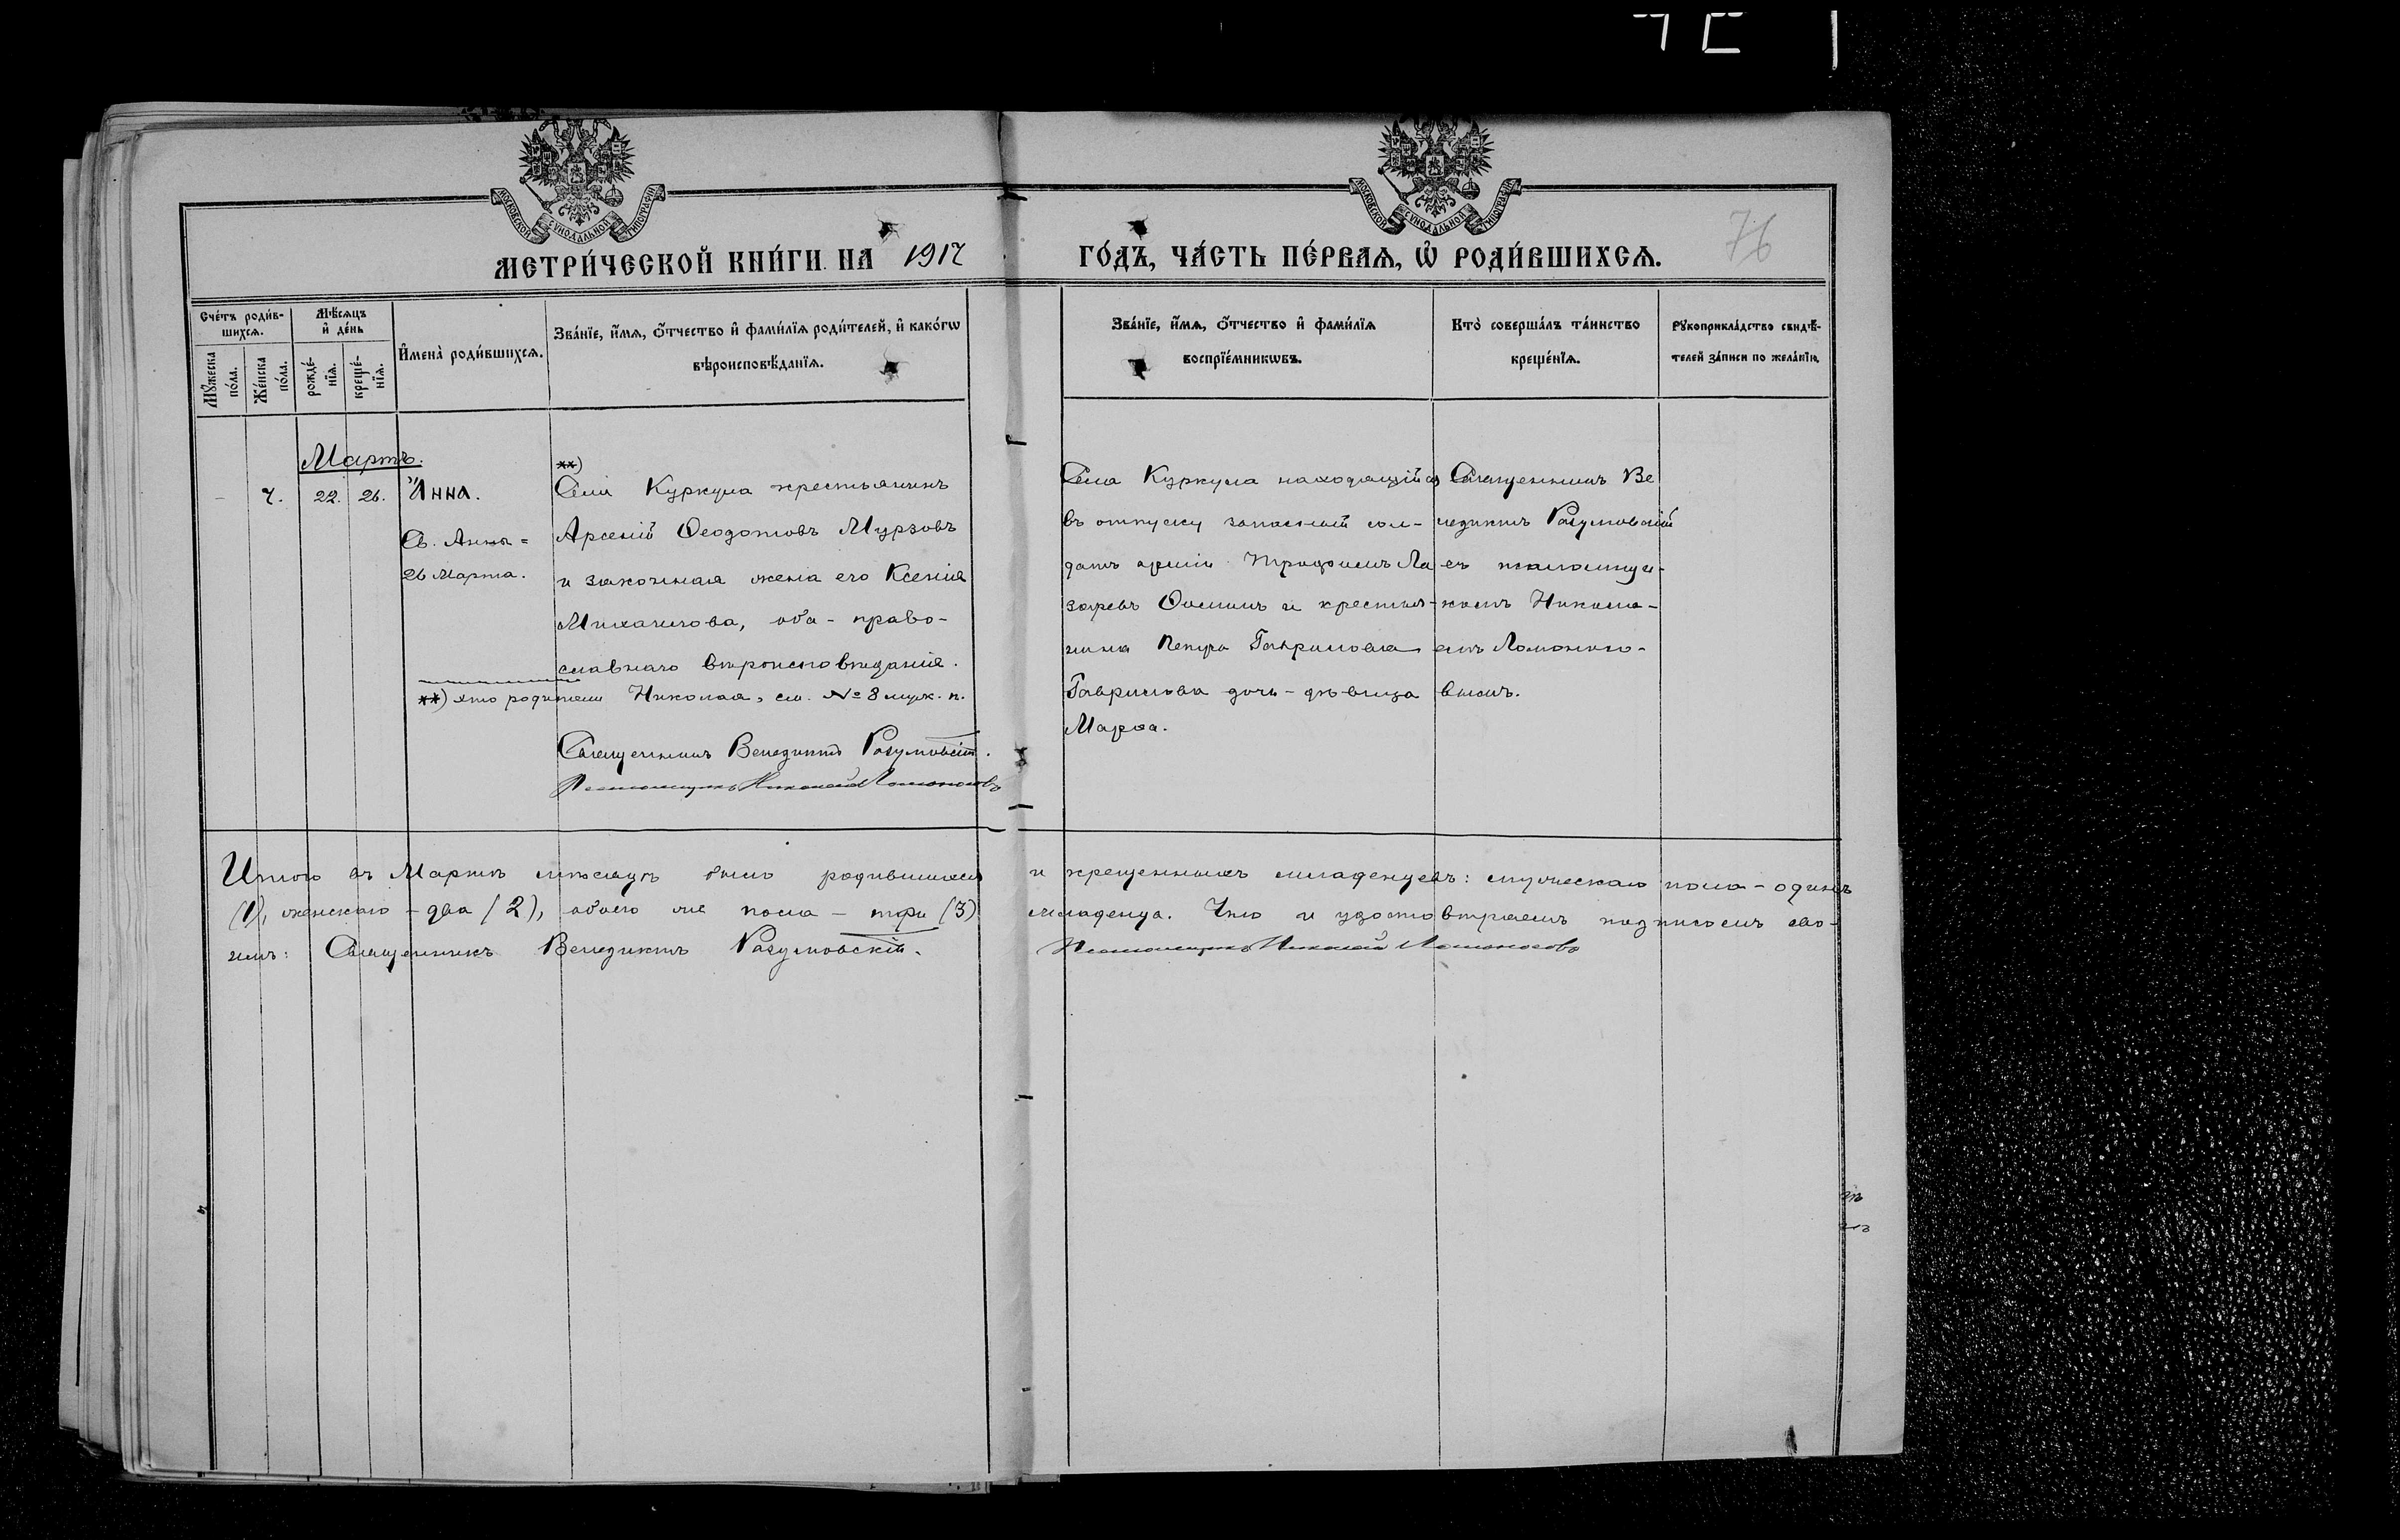 МОСКОВСКОЙ СѴНОДАЛЬНОЙ ТИПОГРАФІИ
МОСКОВСКОЙ СѴНОДАЛЬНОЙ ТИПОГРАФІИ
МЕТРИ́ЧЕСКОЙ КНИ́ГИ НА 1917 ГО́ДЪ, ЧА́СТЬ ПЕ́РВАѦ, Ѡ҆ РОДИ́ВШИХСѦ.
76
Сче́тъ роди́в-
шихсѧ.
Мѹ́жеска
по́ла.
Же́нска
по́ла.
Мѣ́сѧцъ
и҆ де́нь
рожде́-
нїѧ.
креще́-
нїѧ.
И҆мена̀ роди́вшихсѧ.
Зва́нїе, и҆́мѧ, ѻ҆́тчество и҆ фами́лїѧ роди́телей, и҆ како́гѡ
вѣроисповѣ́данїѧ.
Зва́нїе, и҆́мѧ, ѻ҆́тчество и҆ фами́лїѧ
воспрїе́мникѡвъ.
Кто̀ соверша́лъ та́инство
креще́нїѧ.
Рѹкоприкла́дство свидѣ́-
телей за́писи по жела́нїю.
Мартъ.
- 7. 22. 26.
Анна.
Св. Анны =
26 Марта.
**)
Села Куркула крестьянинъ
Арсеній Ѳеодотовъ Мурзовъ
и законная жена его Ксенія
Михаилова, оба - право-
славнаго вѣроисповѣданія.
**) это родители Николая, см. № 8 муж. п.
Священникъ Венедиктъ Разумовскій.
Псаломщикъ Николай Ломоносовъ
Села Куркула находящійся
въ отпуску запасный сол-
датъ арміи Трофимъ Ла
заревъ и крестья-
нина Петра Гаврилова
Гаврилова дочь - дѣвица
Марѳа.
Священникъ Ве
недиктъ Разумовскій
съ псаломщи-
комъ Никола-
емъ Ломоносо-
вымъ.
Итого въ Мартѣ мѣсяцѣ было родившихся и крещенныхъ младенцевъ: мужескаго пола - одинъ
(1), женскаго - два (2), обоего же пола - три (3) младенца. Что и удостовѣряемъ подписомъ сво-
имъ: Священникъ Венедиктъ Разумовскій. Псаломщикъ Николай Ломоносовъ